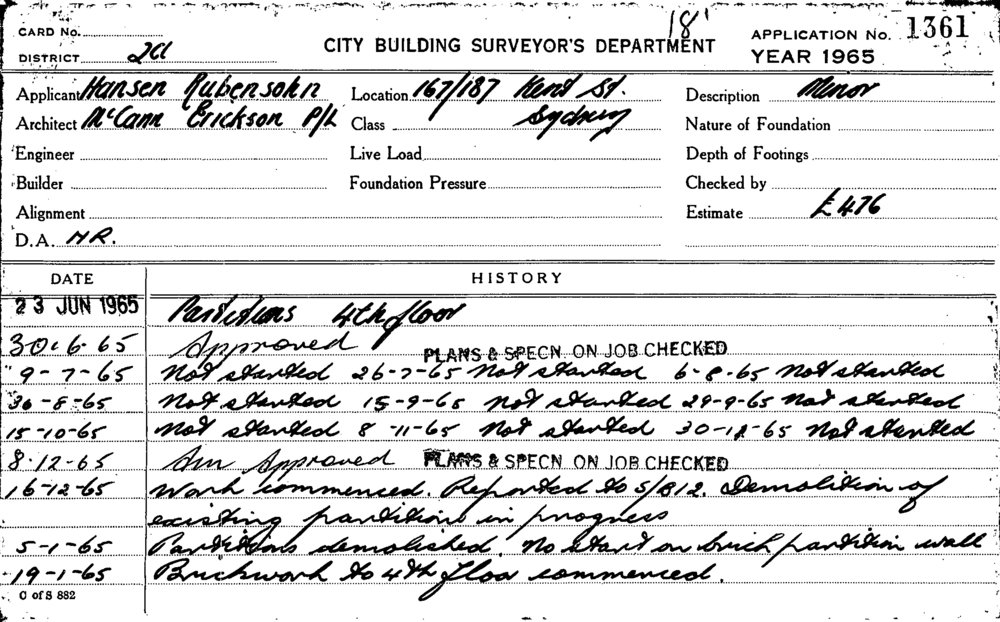 18'
CARD No.
CITY BUILDING SURVEYOR'S DEPARTMENT
APPLICATION No. 1361
DISTRICT 2a
YEAR 1965
Applicant Hansen Rubensohn Location 167/187 Kent St. Description Minor
Architect McCann Erickson P/L Class Sydney Nature of Foundation
Engineer Live Load Depth of Footings
Builder Foundation Pressure Checked by
Alignment Estimate £476
D.A. MR.
DATE HISTORY
23 JUN 1965 Partitions 4th floor
30.6.65 Approved PLANS & SPECN. ON JOB CHECKED
9-7-65 Not started 26-7-65 Not started 6-8-65 Not started
30-8-65 Not started 15-9-65 Not started 29-9-65 Not started
15-10-65 Not started 8-11-65 Not started 30-11-65 Not started
8.12-65 Am Approved PLANS & SPECN. ON JOB CHECKED
16-12-65 Work commenced. Reported to S/B12. Demolition of
existing partitions in progress
5-1-65 Partitions demolished. No start on brick partition wall
19-1-65 Brickwork to 4th floor commenced.
C of S 882